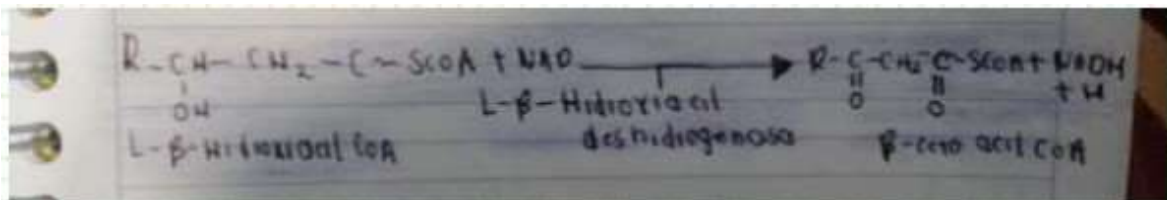 R-CH-CH₂-C~SCOA + NAD → R-C-CH₂-C~SCOA + NADH
OH
O O + H
L-β-Hidroxiacil
deshidrogenasa
L-β-Hidroxiacil COA
β-ceto acil COA